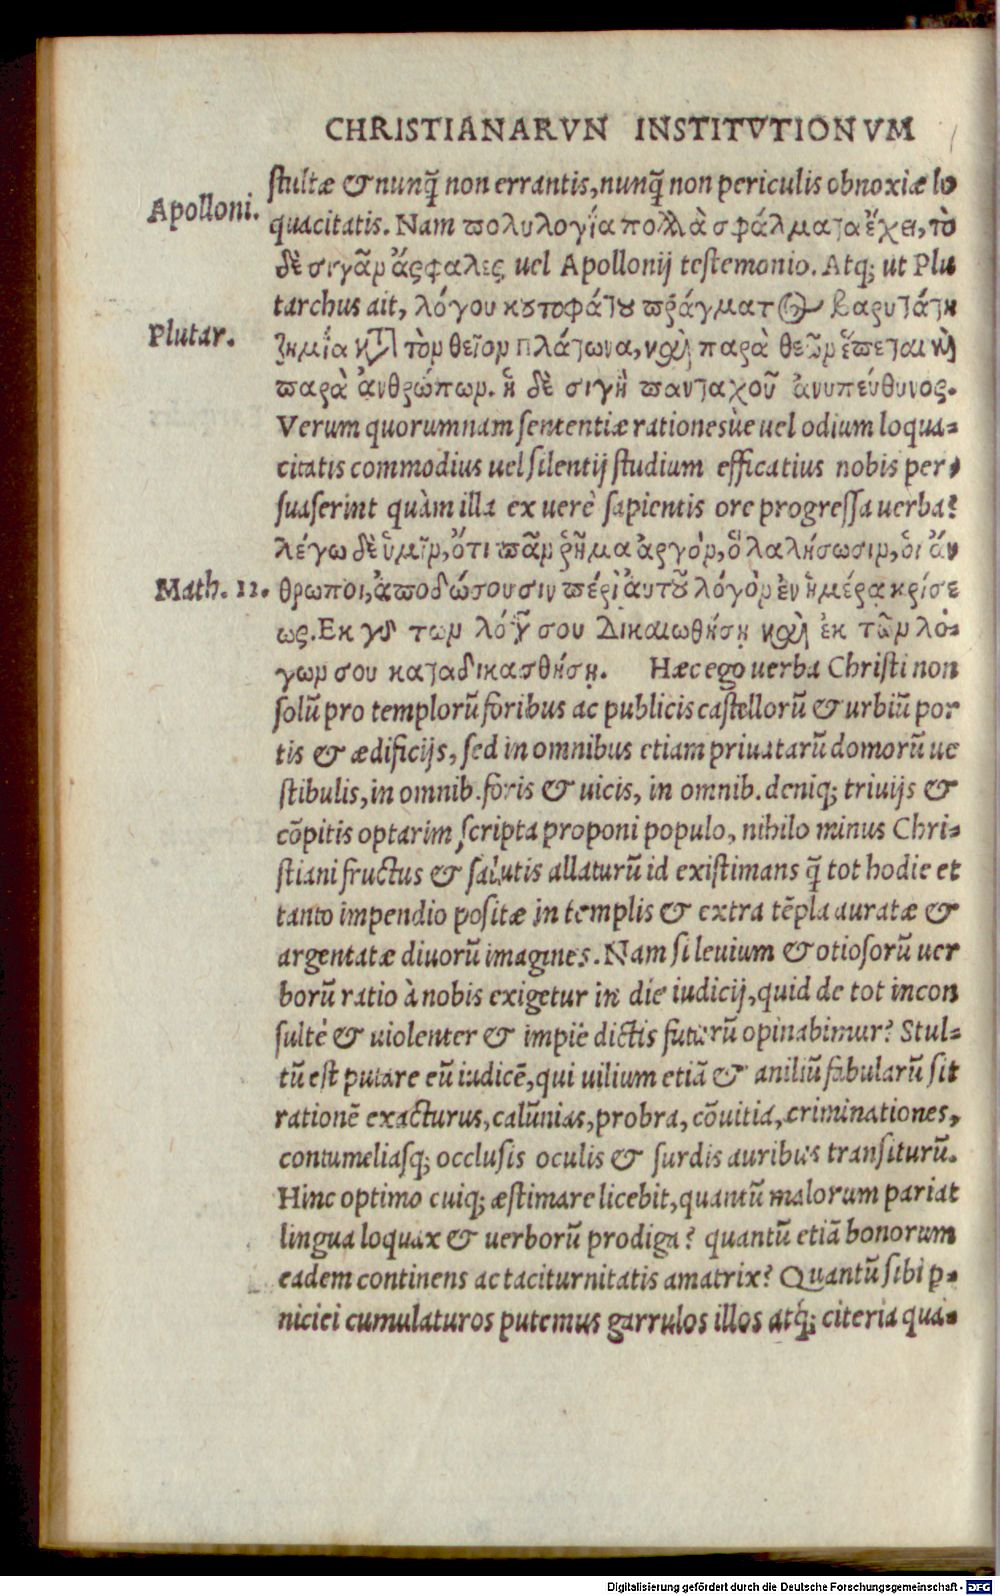 CHRISTIANARVN INSTITVTIONVM
stultæ & nunq̃ non errantis, nunq̃ non periculis obnoxiæ lo
Apolloni.
quacitatis. Nam πολυλογία πολλὰ σφάλματα ἔχει, τὸ
δὲ σιγᾶν ἄσφαλες uel Apollonij testemonio. Atq; ut Plu
tarchus ait, λόγου κουτοφάτου πράγματος βαρυτάτη
Plutar.
ζημία κατὰ τὸν θεῖον πλάτωνα, καὶ παρὰ θεῶν ἕπεται καὶ
παρὰ ἀνθρώπων. ἡ δὲ σιγὴ πανταχοῦ ἀνυπεύθυνος.
Verum quorumnam sententiæ rationesùe uel odium loqua-
citatis commodius uel silentij studium efficatius nobis per-
suaserint quàm illa ex uerè sapientis ore progressa uerba?
λέγω δὲ ὑμῖν, ὅτι πᾶν ῥῆμα ἀργόν, ὃ λαλήσωσιν, ὁι ἄν
Math. 12.
θρωποι, ἀποδώσουσιν πέρὶ ἀυτοῦ λόγον ἐν ἡμέρᾳ κρίσε
ως. Εκ γὸ των λόγων σου Δικαιωθήσῃ καὶ ἐκ τῶν λό-
γων σου καταδικασθήσῃ. Hæc ego uerba Christi non
solũ pro templorũ foribus ac publicis castellorũ & urbiũ por
tis & ædificijs, sed in omnibus etiam priuatarũ domorũ ue
stibulis, in omnib. foris & uicis, in omnib. deniq; triuijs &
cõpitis optarim scripta proponi populo, nihilo minus Chri-
stiani fructus & salutis allaturũ id existimans q̃ tot hodie et
tanto impendio positæ in templis & extra tẽpla auratæ &
argentatæ diuorũ imagines. Nam si leuium & otiosorũ uer
borũ ratio à nobis exigetur in die iudicij, quid de tot incon
sultè & uiolenter & impiè dictis futurũ opinabimur? Stul-
tũ est putare eũ iudicẽ, qui uilium etiã & aniliũ fabularũ sit
rationẽ exacturus, calũnias, probra, cõuitia, criminationes,
contumeliasq; occlusis oculis & surdis auribus transiturũ.
Hinc optimo cuiq; æstimare licebit, quantũ malorum pariat
lingua loquax & uerborũ prodiga? quantũ etiã bonorum
eadem continens ac taciturnitatis amatrix? Quantũ sibi p-
niciei cumulaturos putemus garrulos illos atq́; citeria qua-
Digitalisierung gefördert durch die Deutsche Forschungsgemeinschaft - DFG